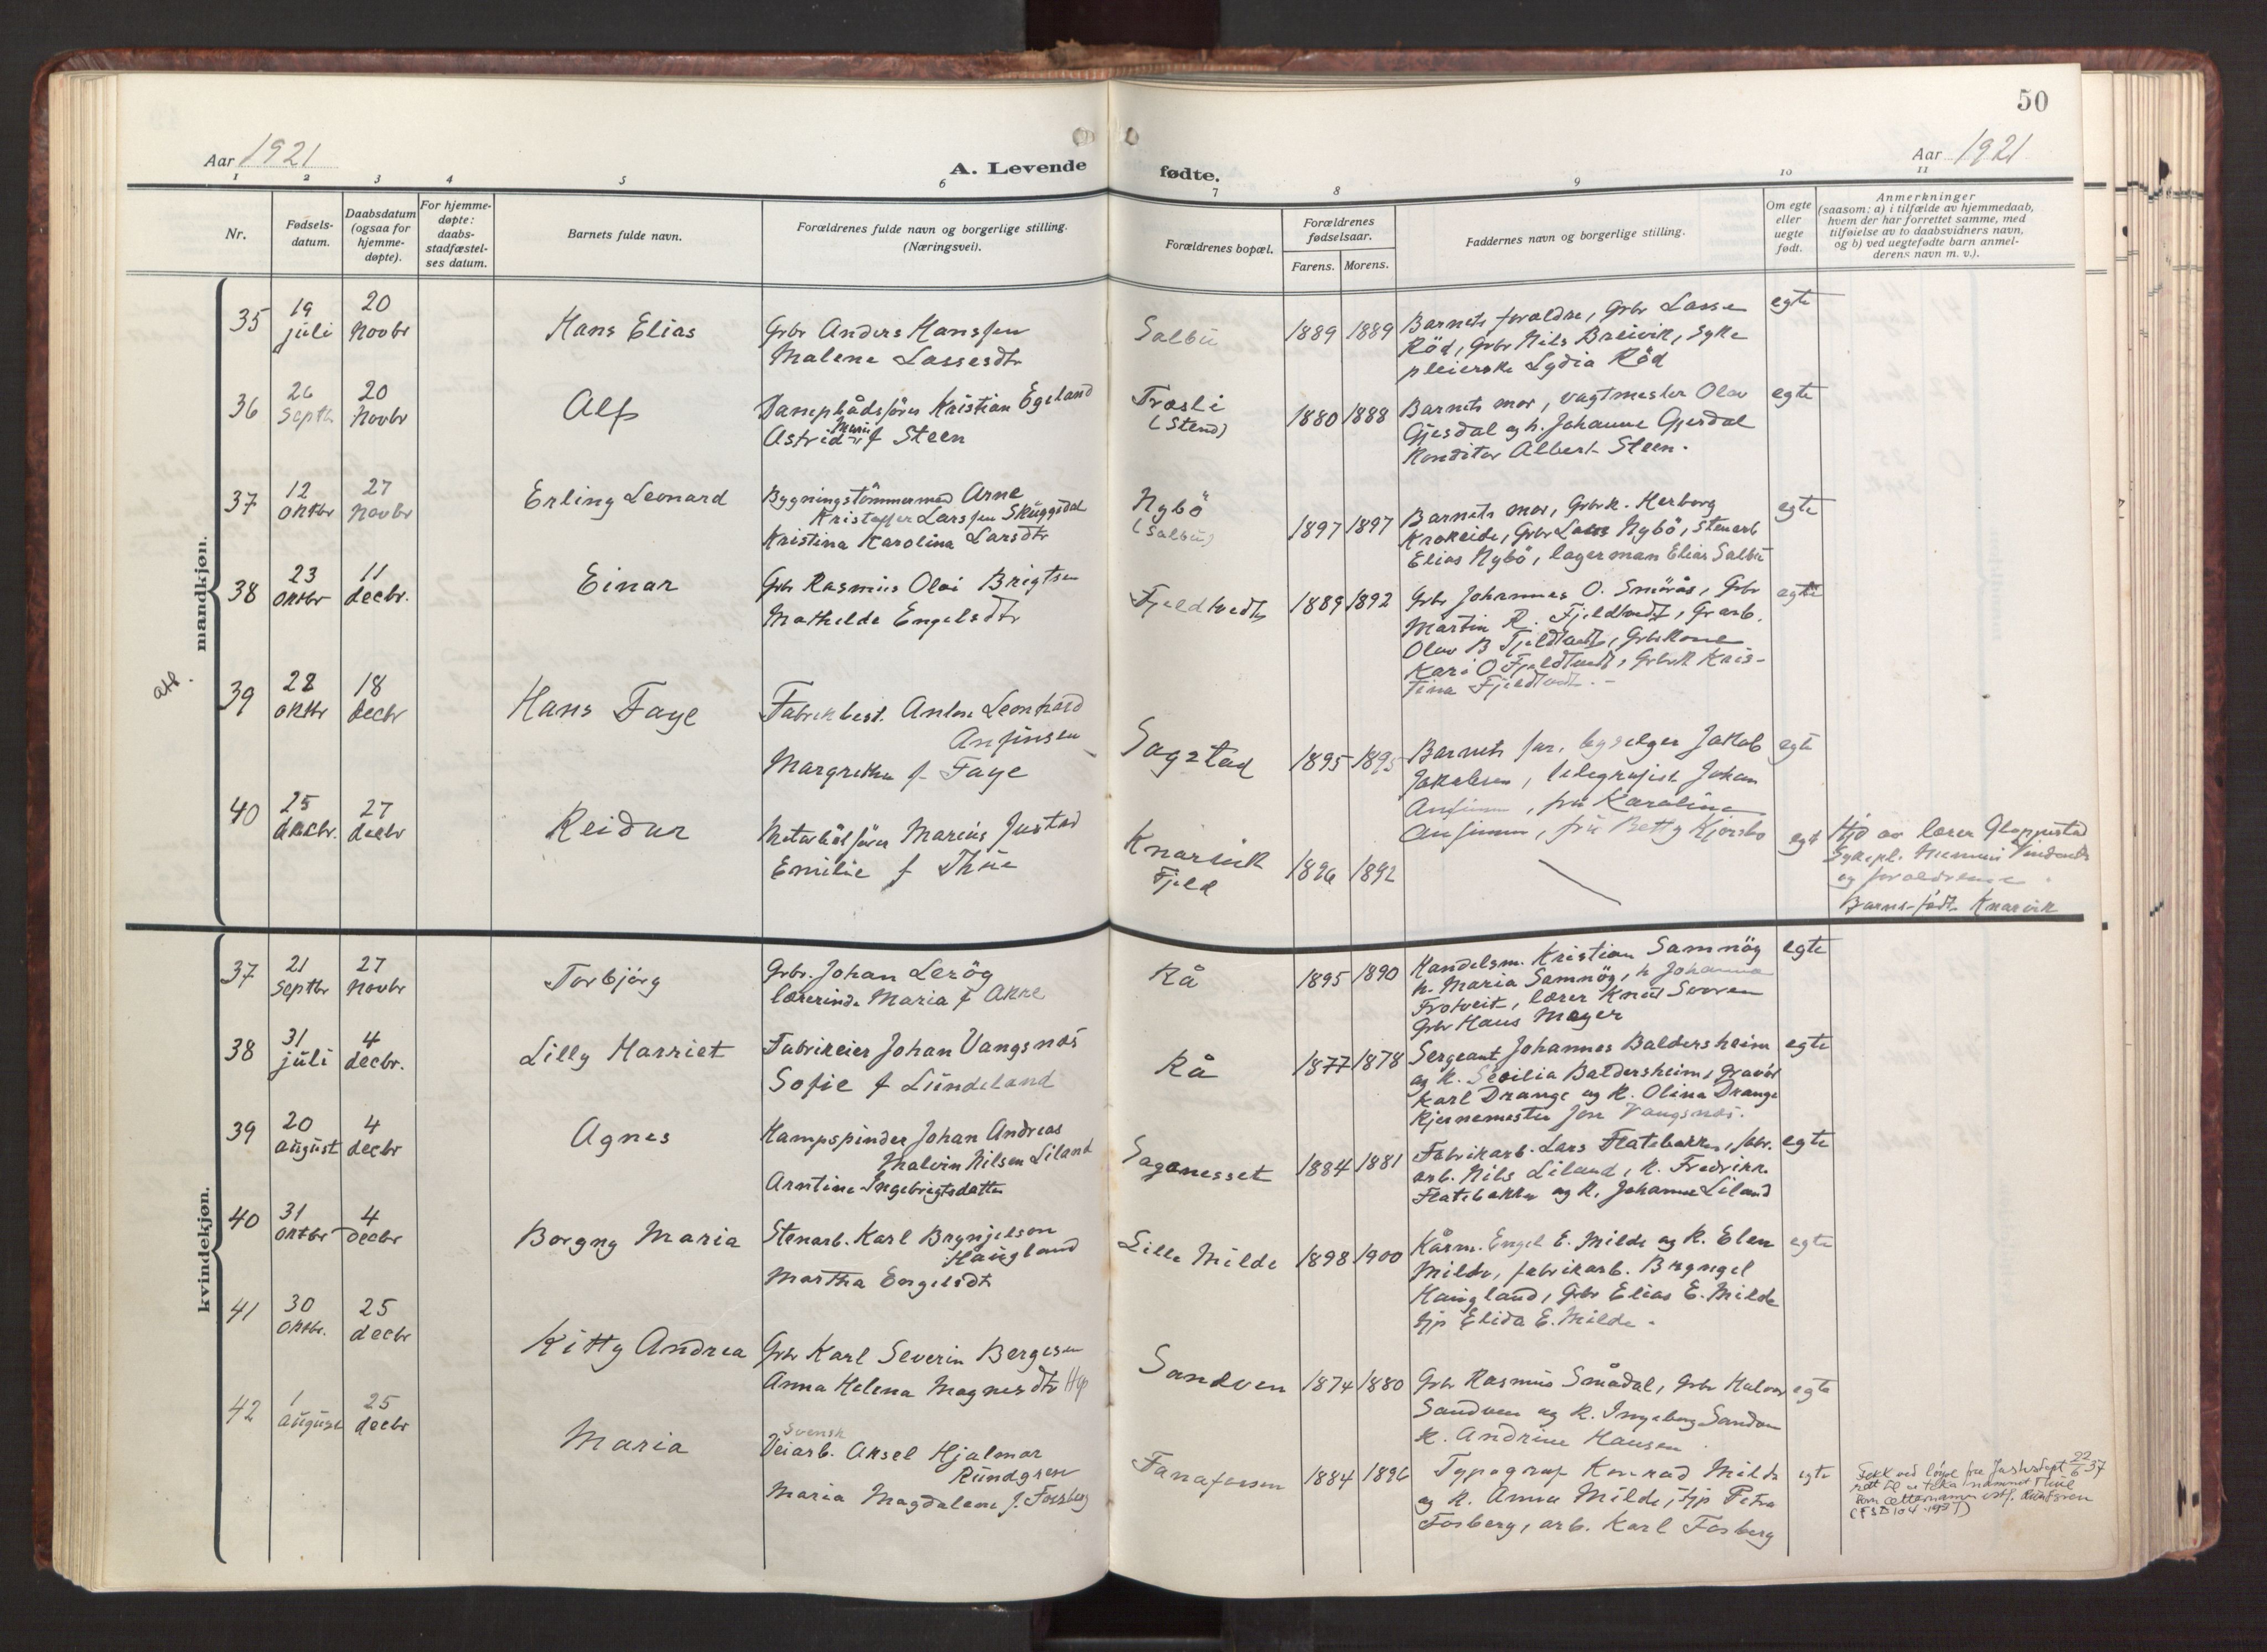 50
Aar 1921
A. Levende
fødte.
Aar 1921
1 2 3 4 5 6 7 8 9 10 11
Nr.
Fødsels-
datum.
Daabsdatum
(ogsaa for
hjemme-
døpte).
For hjemme-
døpte:
daabs-
stadfæstel-
ses datum.
Barnets fulde navn.
Forældrenes fulde navn og borgerlige stilling.
(Næringsvei).
Forældrenes bopæl.
Forældrenes
fødselsaar.
Farens. Morens.
Faddernes navn og borgerlige stilling.
Om egte
eller
uegte
født.
Anmerkninger
(saasom: a) i tilfælde av hjemmedaab,
hvem der har forrettet samme, med
tilføielse av to daabsvidners navn,
og b) ved uegtefødte barn anmel-
derens navn m. v.).
mandkjøn.
35
19
juli
20
Novbr
Hans Elias
Grbr Anders Hanssen
Malene Lassesdtr
Salbu
1889 1889
Barnets foraldre, Grbr Lasse
Röd, Grbr Nils Breivik, Syke
pleierske Lydia Röd
egte
36
26
Septbr
20
Novbr
Alf
Dampbådsförer Kristian Egeland
Astrid Marie f Steen
Træsli
(Stend)
1880 1888
Barnets mor, vagtmester Olav
Gjesdal og h. Johanne Gjesdal
Konditor Albert Steen.
egte
37
12
Oktbr
27
Novbr
Erling Leonard
Bygningstömmermand Arne
Kristoffer Larssen Skuggedal
Kristina Karolina Larsdtr
Nybö
(Salbu)
1897 1897
Barnets mor, Grbrk. Herborg
Krokeide, Grbr Lars Nybö, Stenarb
Elias Nybö, lagerman Elias Salbu
egte
38
23
Oktbr
11
decbr.
Einar
Grbr Rasmus Olai Brigtsen
Mathilde Engelsdtr
Fjeldtvedt
1889 1892
Grbr Johannes O. Smörås, Grbr
Martin R. Fjeldtvedt, Grarb.
Olav B Fjeldtvedt, Grbrkone
Kari O Fjeldtvedt, Grbrk Kris-
tina Fjeldtvedt. -
egte
39
28
Oktbr
18
decbr
Hans Faye
Fabrikbest. Anton Leonhard
Anfinsen
Margrethe f Faye
Sagstad
1895 1895
Barnets far, Jakob
Jakobsen, telegrafist Johan
Anfinsen, fru Karoline
Anfinsen, fru Betty Kjorsbo
egte
40
25
27
decbr
Reidar
Motorbåtförer Marius Justad
Emilie f Thue
Knarvik
Fjeld
1896 1892
egt
Hjd av lærer Gloppestad
Sykepl.
og forældrene.
Barnet födt Knarvik
kvindekjøn.
37
21
Septbr
27
Novbr
Torbjörg
Grbr. Johan Leröy
lærerinde Maria f Akre
Rå
1895 1890
Handelsm. Kristian Samnöy
h. Maria Samnöy, h Johanna
Frotveit, lærer Knut Sooren
Grbr Hans Meyer
egte
38
31
juli
4
decbr.
Lilly Harriet
Fabrikeier Johan Vangsnes
Sofie f Lundeland
Rå
1877 1878
Sergeant Johannes Baldersheim
og K. Secilia Baldersheim, Gravör
Karl Drange og K. Olina Drange
Kjernemester Jon Vangsnes.
egte
39
20
august
4
decbr
Agnes
Hampspinder Johan Andreas
Malvin Nilsen Liland
Arntine Ingebrigtsdatter
Saganesset
1884 1881
Fabrikarb. Lars Flatebakken, fabr.
arb. Nils Liland, K. Fredrikke
Flatebakken og K. Johanne Liland
egte
40
31
Oktbr
4
Decbr
Borgny Maria
Stenarb. Karl Brynjelson
Haugland
Martha Engelsdtr
Lille Milde
1898 1900
Kårm. Engel E. Milde og K. Elen
Milde, fabrikarb. Bryngel
Haugland, Grbr Elias E. Milde
tjp Elida E. Milde.
egte
41
30
Oktbr.
25
decbr
Kitty Andrea
Grbr Karl Severin Bergesen
Anna Helena Magnesdtr
Sandven
1874 1880
Grbr Rasmus Smådal, Grbr Halvor
Sandven og K. Ingeborg Sandven
K. Andrine Hansen
egte
42
1
august
25
decbr
Maria
Svensk
Veiarb. Aksel Hjalmar
Rundgren
Maria Magdalene f. Forsberg
Fanafossen
1884 1896
Typograf Konrad Milde
og K. Anna Milde, tjp Petra
Fosberg, arb. Karl Fosberg
egte
Fekk ved löyve fra Justisdept 22/6 37
rett til å taka namnet Thue
som ættenamn istf. Rundgren